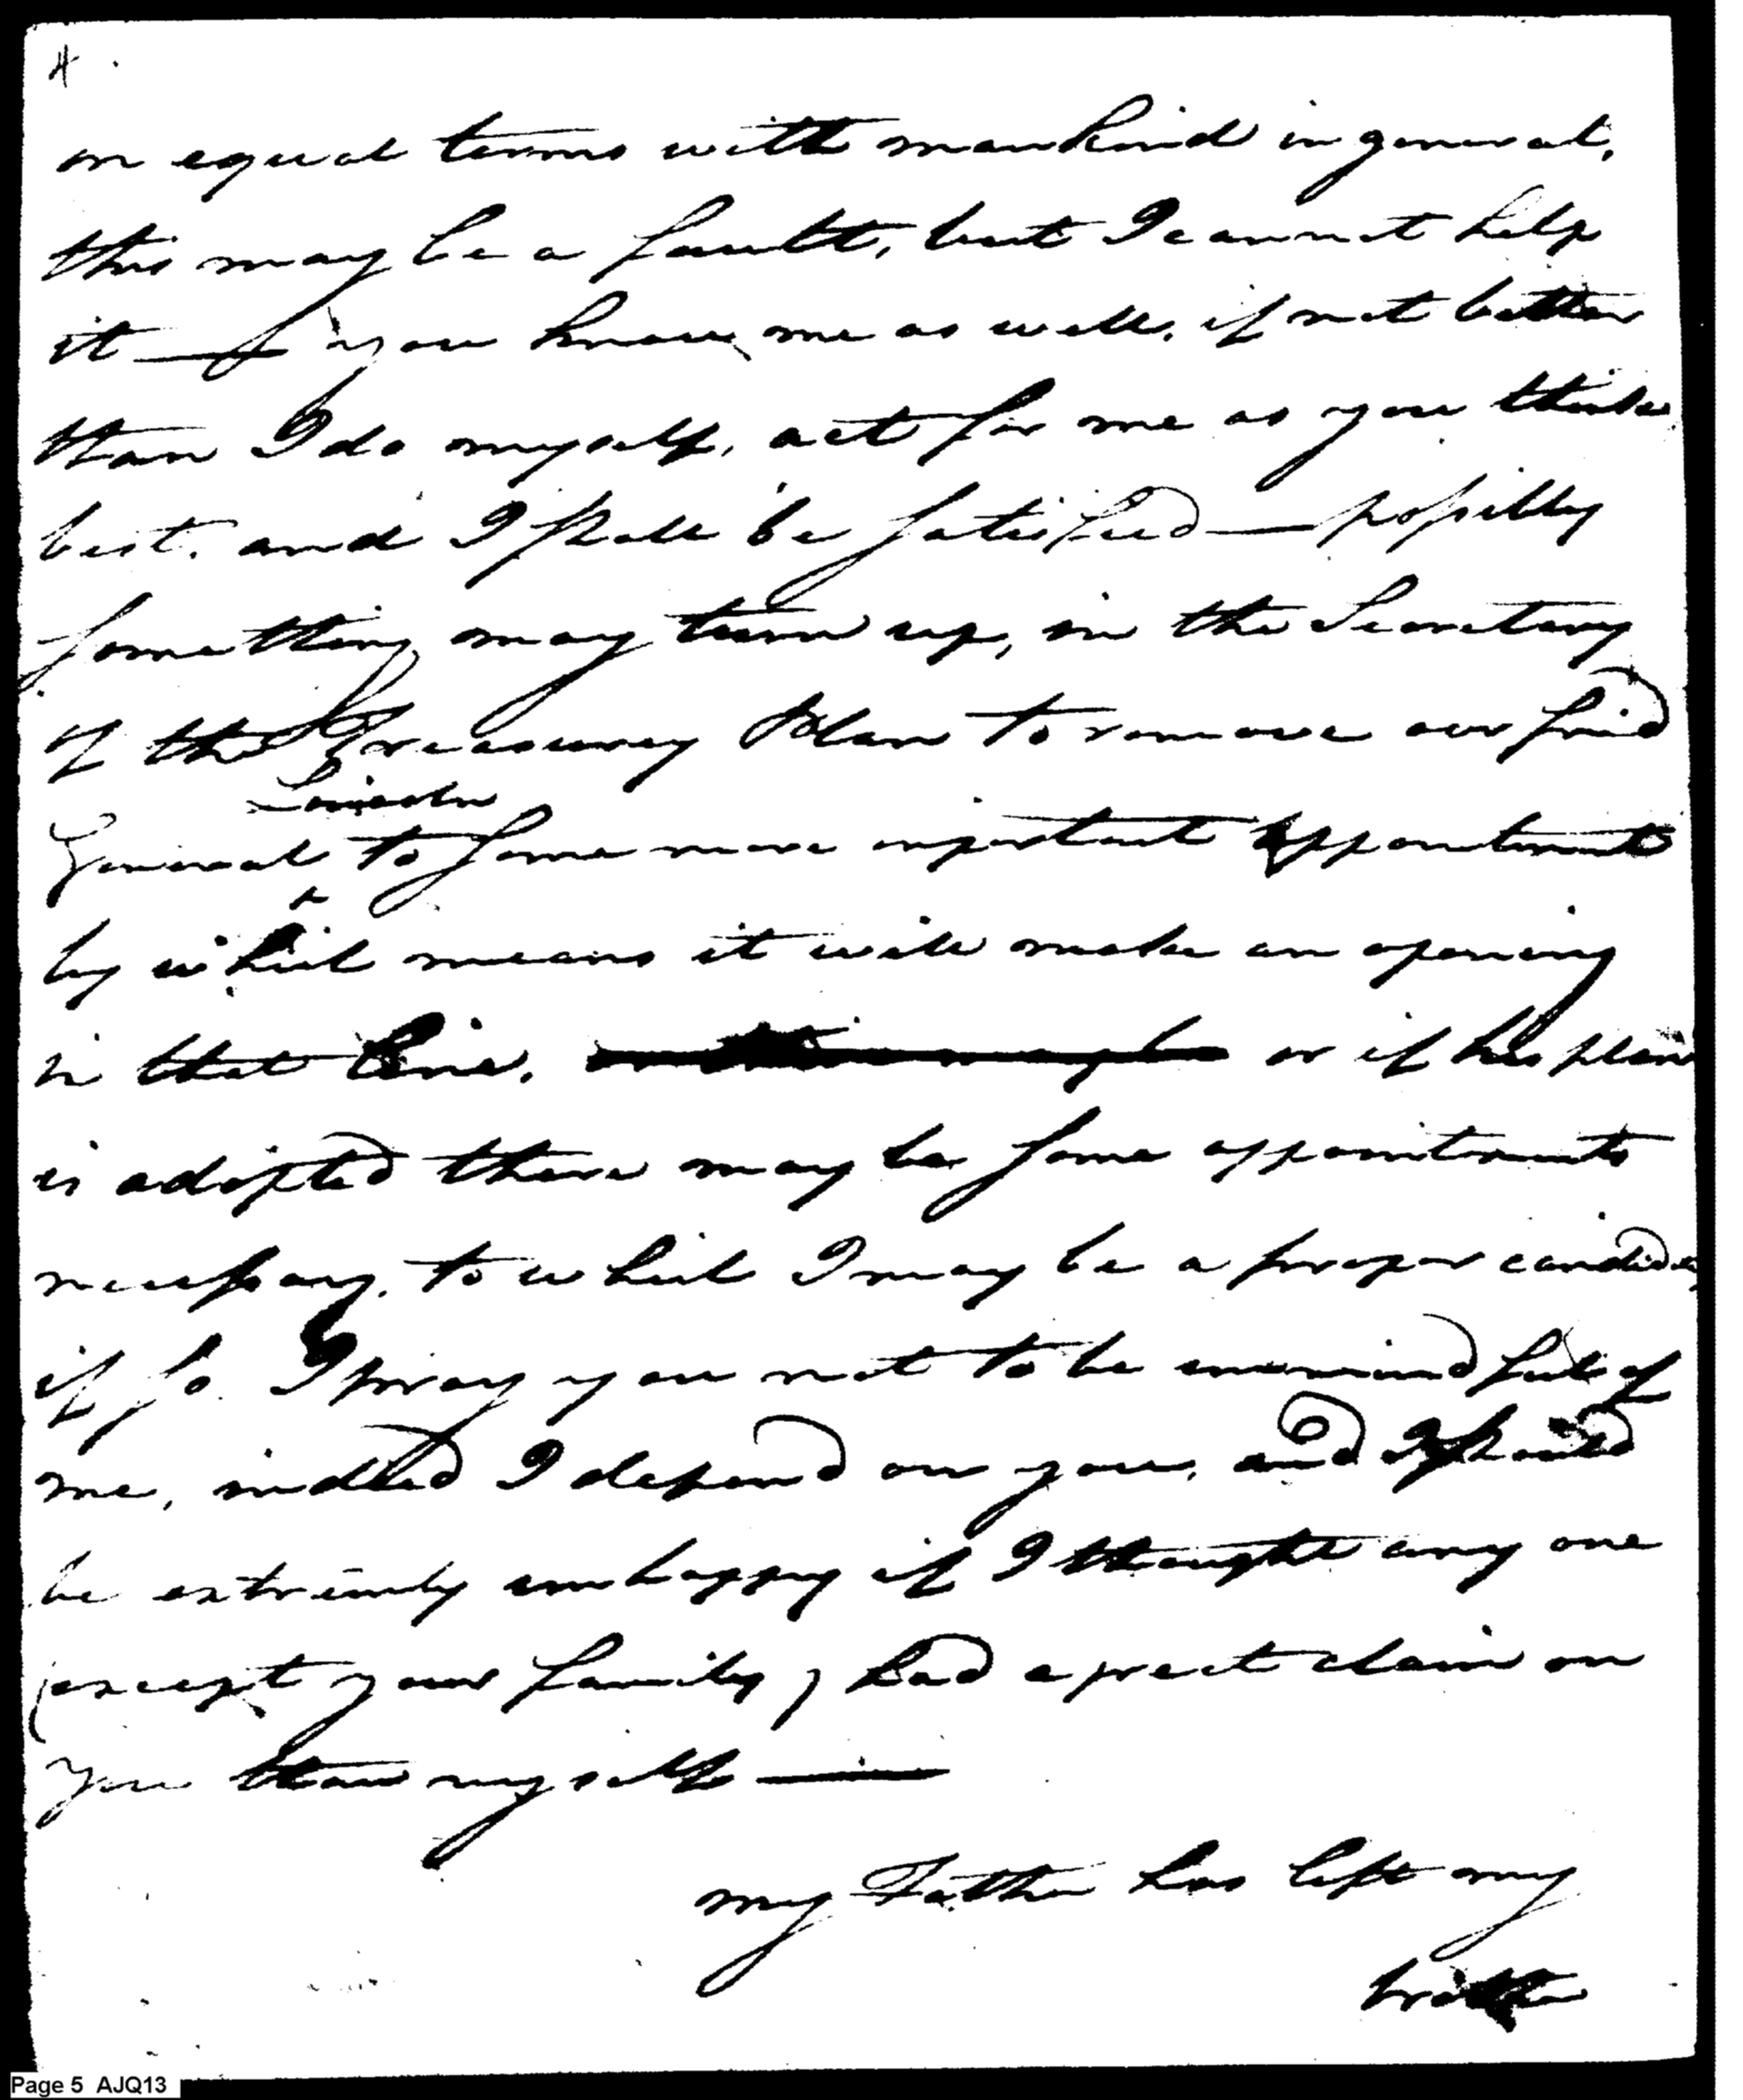 4
on equal terms with mankind in general,
this may be a fault, but I cannot help
it — you know me as well, if not better
than I do myself, act for me as you think
best. and I shall be satisfied — possibly
something may turn up, in the Secretary
of the Treasury Plan to remove our frind
Lincoln
General to some more inportant appointment
^
by which means it will make an opening
in that line, or if his plan
is adopted there may be some appointments
necessary, to which I may be a proper candidate
if so I pray you not to be unmindful of
me, indeed I depend on you, and I should
be extremely unhappy if I thought any one
(except your family) had a greater claim on
you than myself —
my Father has left my
brother
Page 5 AJQ13